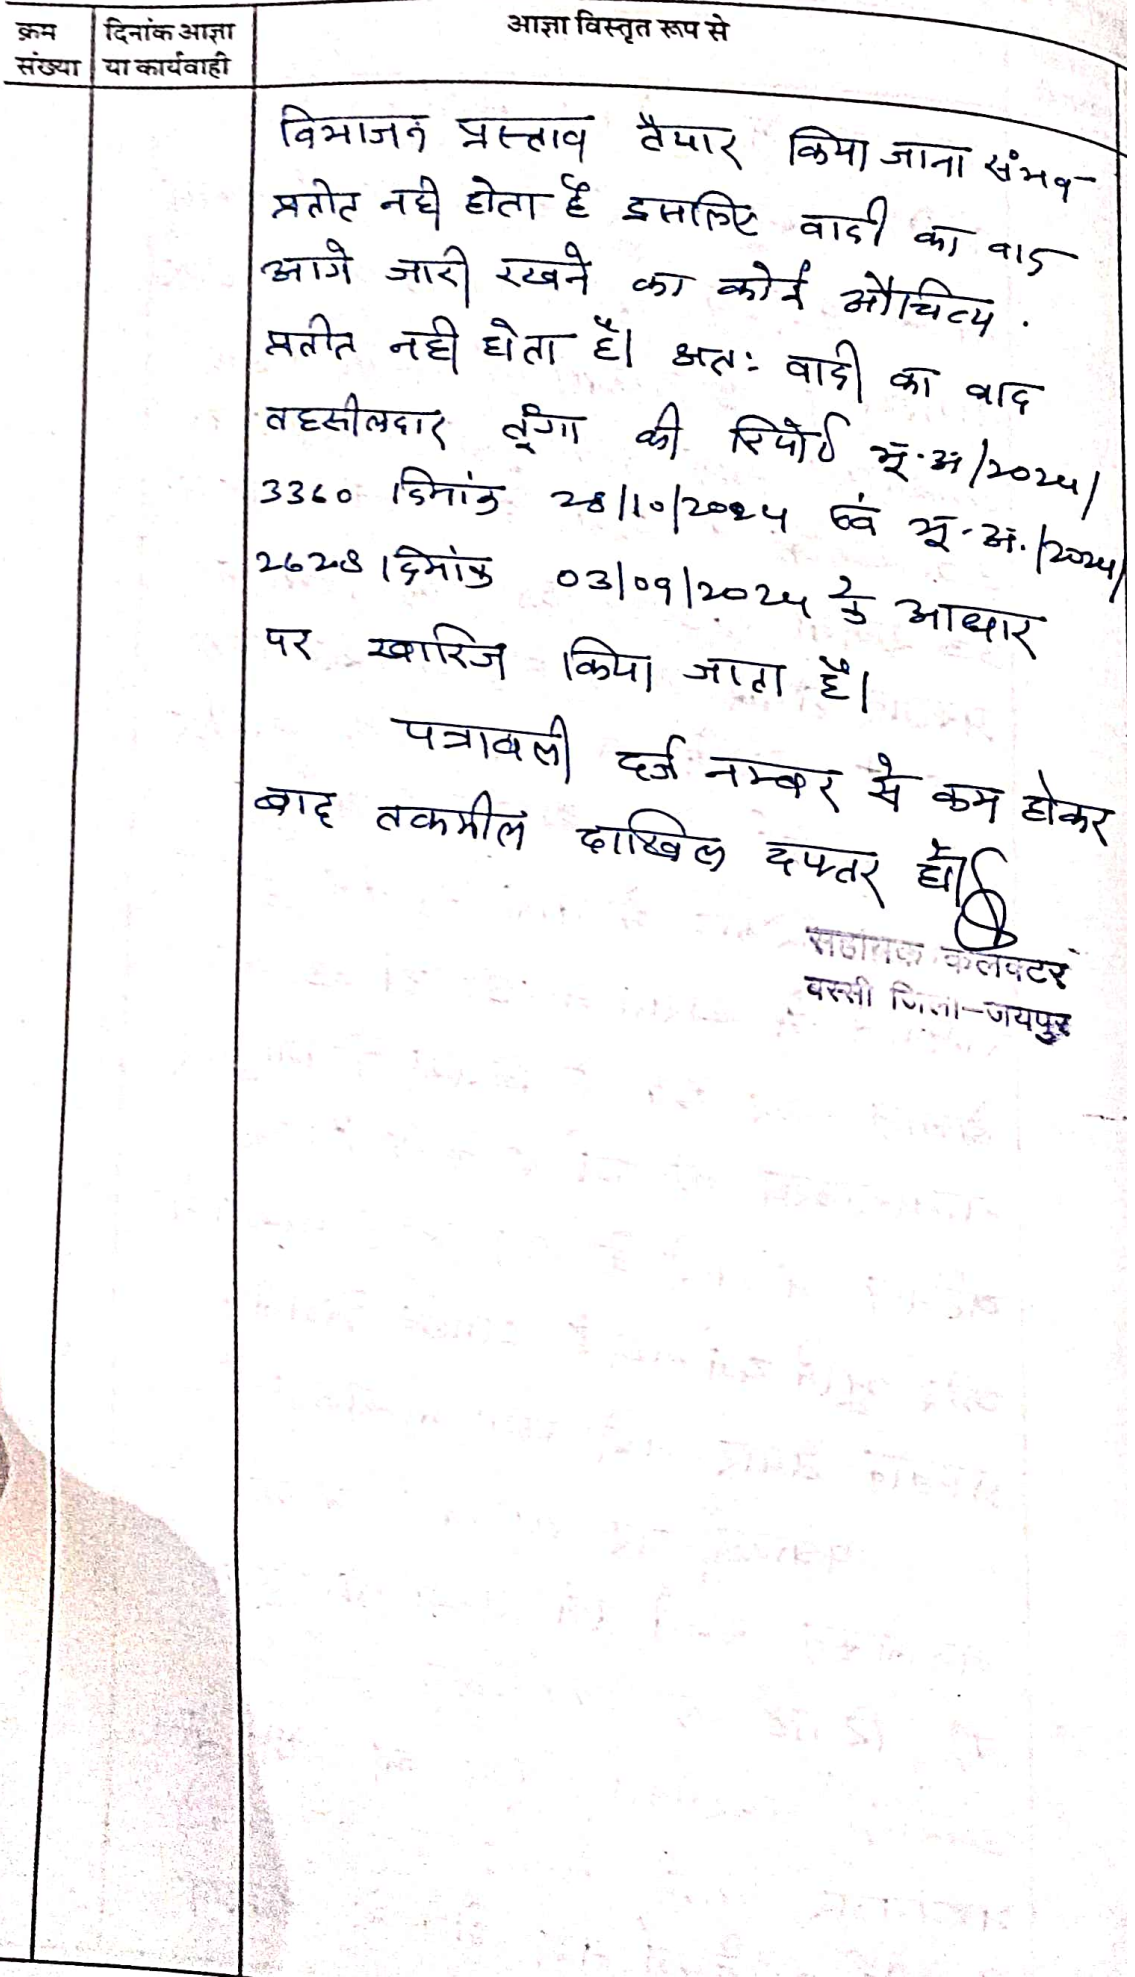 क्रम संख्या
दिनांक आज्ञा या कार्यवाही
आज्ञा विस्तृत रूप से
विभाजन प्रस्ताव तैयार किया जाना संभव
प्रतीत नही होता है इसलिए वादी का वाद
आगे जारी रखने का कोई औचित्य
प्रतीत नही होता है। अतः वादी का वाद
तहसीलदार तूंगा की रिपोर्ट भू.अ/2024/
3360 दिनांक 28/10/2024 एवं भू.अ./2024/
2628 दिनांक 03/09/2024 के आधार
पर खारिज किया जाता है।
पत्रावली दर्ज नम्बर से कम होकर
बाद तकमील दाखिल दफ्तर हो।
सहायक कलक्टर
बस्सी जिला-जयपुर